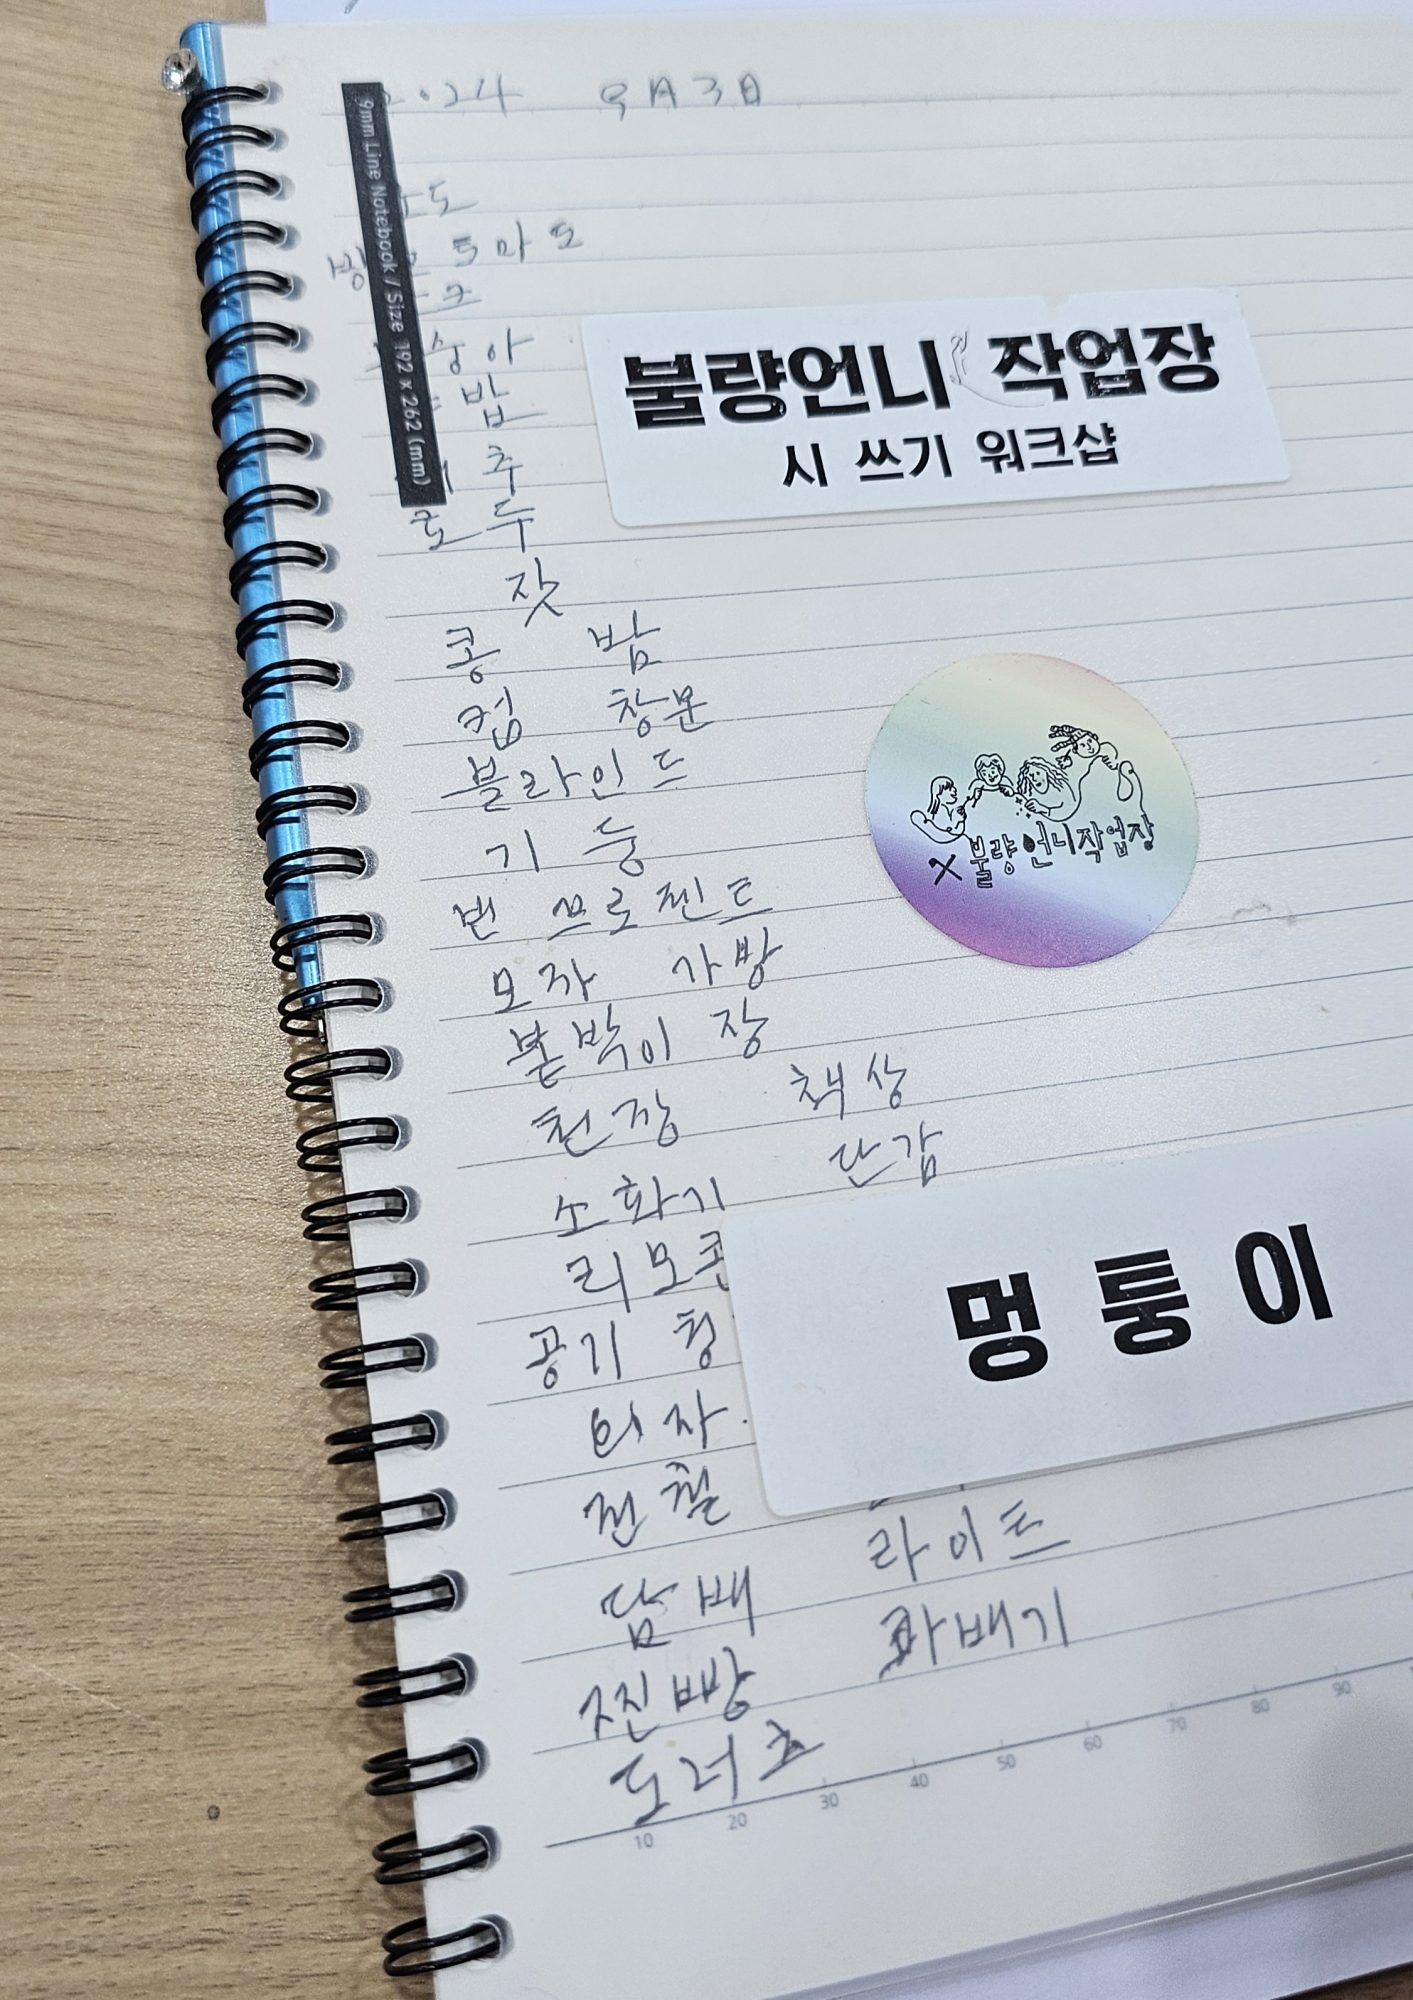 24 9月3日
토마토
추
호두
잣
콩 밤
컵 창문
블라인드
기둥
빈 쁘로젠트
모자 가방
붇박이 장
천장 책상
단감
소화기
리모콘
공기 청
의자
전철
라이트
담배
꽈배기
찐빵
도너츠
9mm Line Notebook / Size 192 x 262 (mm)
불량언니 작업장
시 쓰기 워크샵
불량언니작업장
멍퉁이
10 20 30 40 50 60 70 80 90